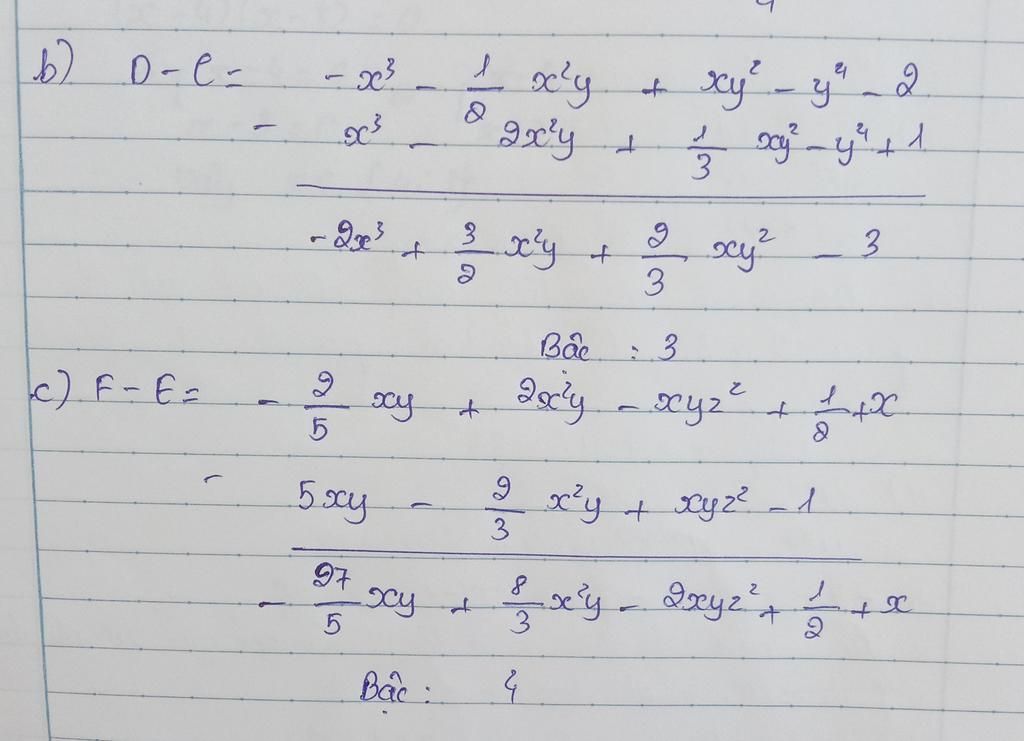 b) D - C = -x³ - 1/2 x²y + xy² - y⁴ - 2
- x³ - 2x²y + 1/3 xy² - y⁴ + 1
-2x³ + 3/2 x²y + 2/3 xy² - 3
Bậc : 3
c) F - E = - 2/5 xy + 2x²y - xyz² + 1/2 + x
- 5xy - 2/3 x²y + xyz² - 1
- 27/5 xy + 8/3 x²y - 2xyz² + 1/2 + x
Bậc : 4